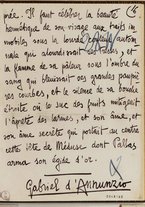 inde. Il faut célébrer la beauté
hermétique de son visage aux traits im-
mobiles, sous la lourde
qui alourdissait ses
la flamme de sa pâleur sous l'ombre du
sang qui blanchissait ces grandes paupiè-
res courbes, et le silence de sa bouche
étroite où le suc des fruits mitigeait
l'âpreté des larmes, et son âme, et
son âme secrète qui portait au centre
cette tête de Méduse dont Pallas
arma son égide d'or.
Gabriel d'Annunzio